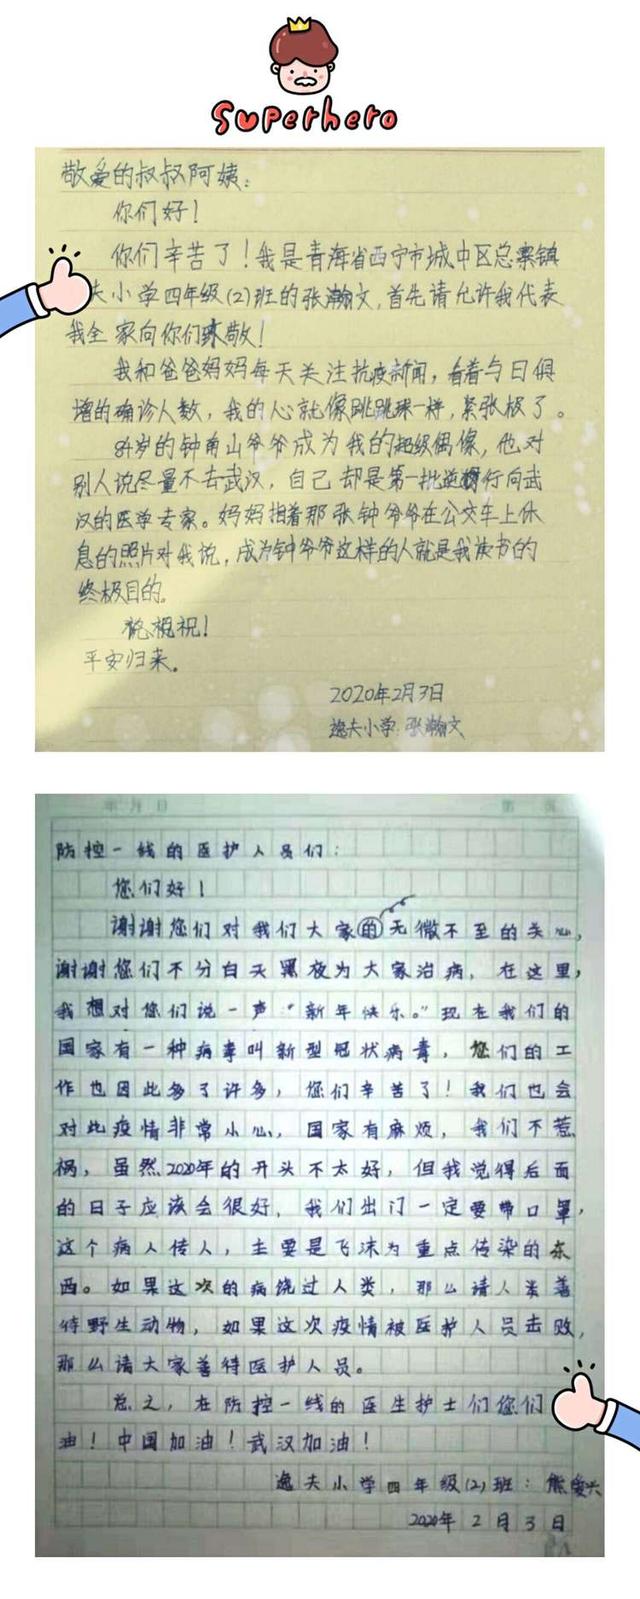 Superhero
敬爱的叔叔阿姨：
你们好！
你们辛苦了！我是青海省西宁市城中区总寨镇
夫小学四年级(2)班的张瀚文，首先请允许我代表
我全家向你们致敬！
我和爸爸妈妈每天关注抗疫新闻，看着与日俱
增的确诊人数，我的心就像跳跳球一样，紧张极了。
84岁的钟南山爷爷成为我的超级偶像，他对
别人说尽量不去武汉，自己却是第一批逆行向武
汉的医学专家。妈妈指着那张钟爷爷在公交车上休
息的照片对我说，成为钟爷爷这样的人就是我读书的
终极目的。
祝！
平安归来。
2020年2月3日
逸夫小学 张瀚文
年 月 日 第 页
防控一线的医护人员们：
您们好！
谢谢您们对我们大家的无微不至的关心，
谢谢您们不分白天黑夜为大家治病，在这里，
我想对您们说一声“新年快乐。”现在我们的
国家有一种病毒叫新型冠状病毒，您们的工
作也因此多了许多，您们辛苦了！我们也会
对此疫情非常小心，国家有麻烦，我们不惹
祸，虽然2020年的开头不太好，但我觉得后面
的日子应该会很好，我们出门一定要带口罩，
这个病人传人，主要是飞沫为重点传染的东
西。如果这次的病饶过人类，那么请人类善
待野生动物，如果这次疫情被医护人员击败，
那么请大家善待医护人员。
总之，在防控一线的医生护士们您们
油！中国加油！武汉加油！
逸夫小学四年级(2)班：熊爱兴
2020年2月3日